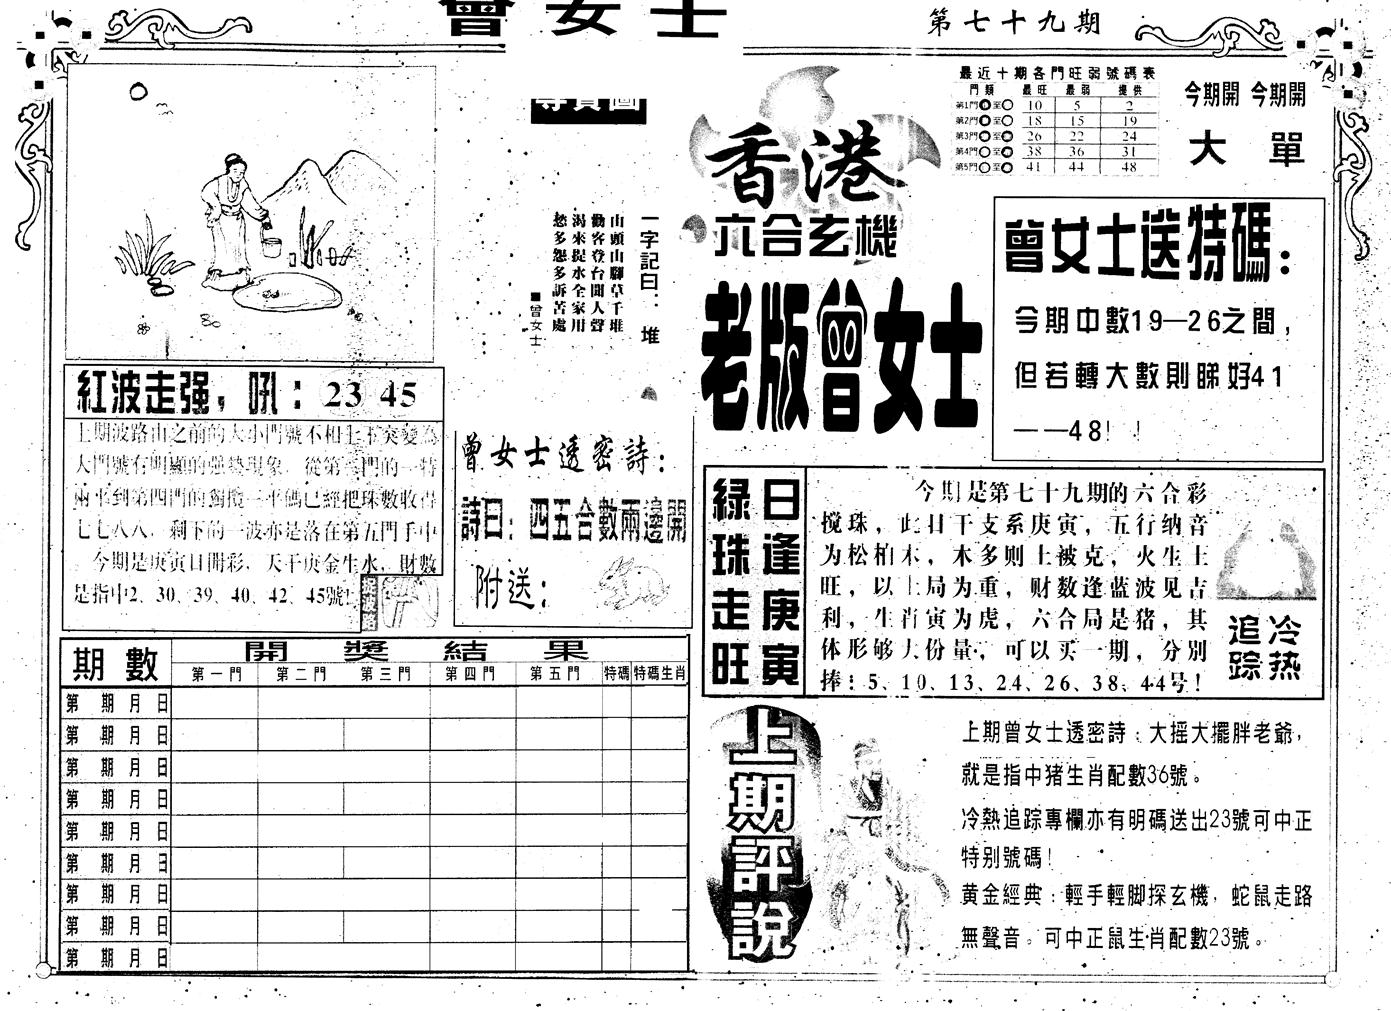 曾女士
第七十九期
尋寶圖
一字記曰：堆
山頭山腳草千堆
勸客登台聞人聲
渴來提水全家用
愁多怨多訴苦處
■曾女士
香港
六合玄機
老版曾女士
最近十期各門旺弱號碼表
門類 最旺 最弱 提供
第1門 至 10 5 2
第2門 至 18 15 19
第3門 至 26 22 24
第4門 至 38 36 31
第5門 至 41 44 48
今期開 今期開
大 單
曾女士送特碼：
今期中數19—26之間，
但若轉大數則睇好41
——48！！
紅波走强，吼：23 45
上期波路由之前的大小門號不相上下突變為
大門號有明顯的强勢現象，從第二門的一特
兩平到第四門的獨攬三平碼已經把珠數收得
七七八八，剩下的一波亦是落在第五門手中
今期是庚寅日開彩，天干庚金生水，財數
是指中2、30、39、40、42、45號！
捉波路
曾女士透密詩：
詩曰：四五合數兩邊開
附送：
綠珠走旺
日逢庚寅
今期是第七十九期的六合彩
搅珠，此日干支系庚寅，五行纳音
为松柏木，木多则土被克，火生土
旺，以土局为重，财数逢蓝波见吉
利，生肖寅为虎，六合局是猪，其
体形够大份量，可以买一期，分别
捧：5、10、13、24、26、38、44号！
追踪
冷热
期數 開獎結果
第一門 第二門 第三門 第四門 第五門 特碼 特碼生肖
第 期 月 日
第 期 月 日
第 期 月 日
第 期 月 日
第 期 月 日
第 期 月 日
第 期 月 日
第 期 月 日
第 期 月 日
上期評說
上期曾女士透密詩：大摇大擺胖老爺，
就是指中猪生肖配數36號。
冷熱追踪專欄亦有明碼送出23號可中正
特别號碼！
黄金經典：輕手輕脚探玄機，蛇鼠走路
無聲音。可中正鼠生肖配數23號。